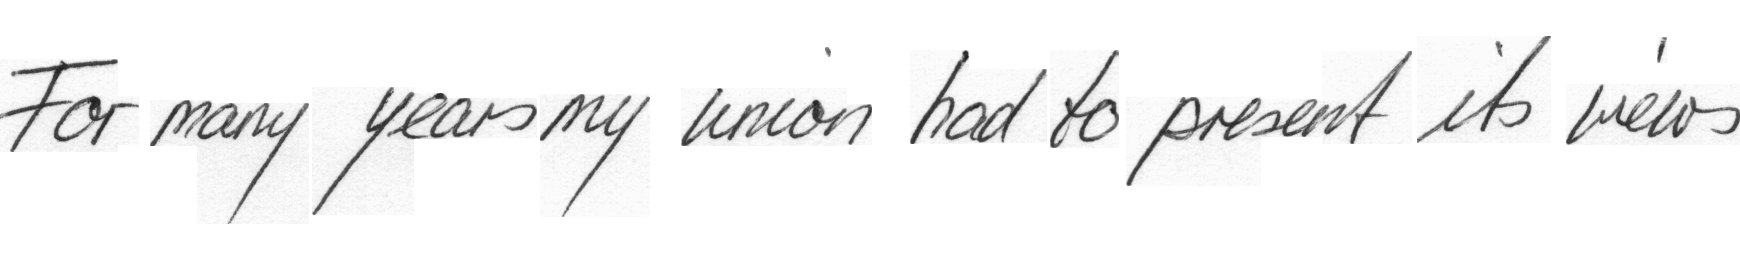 For many years my union had to present its views